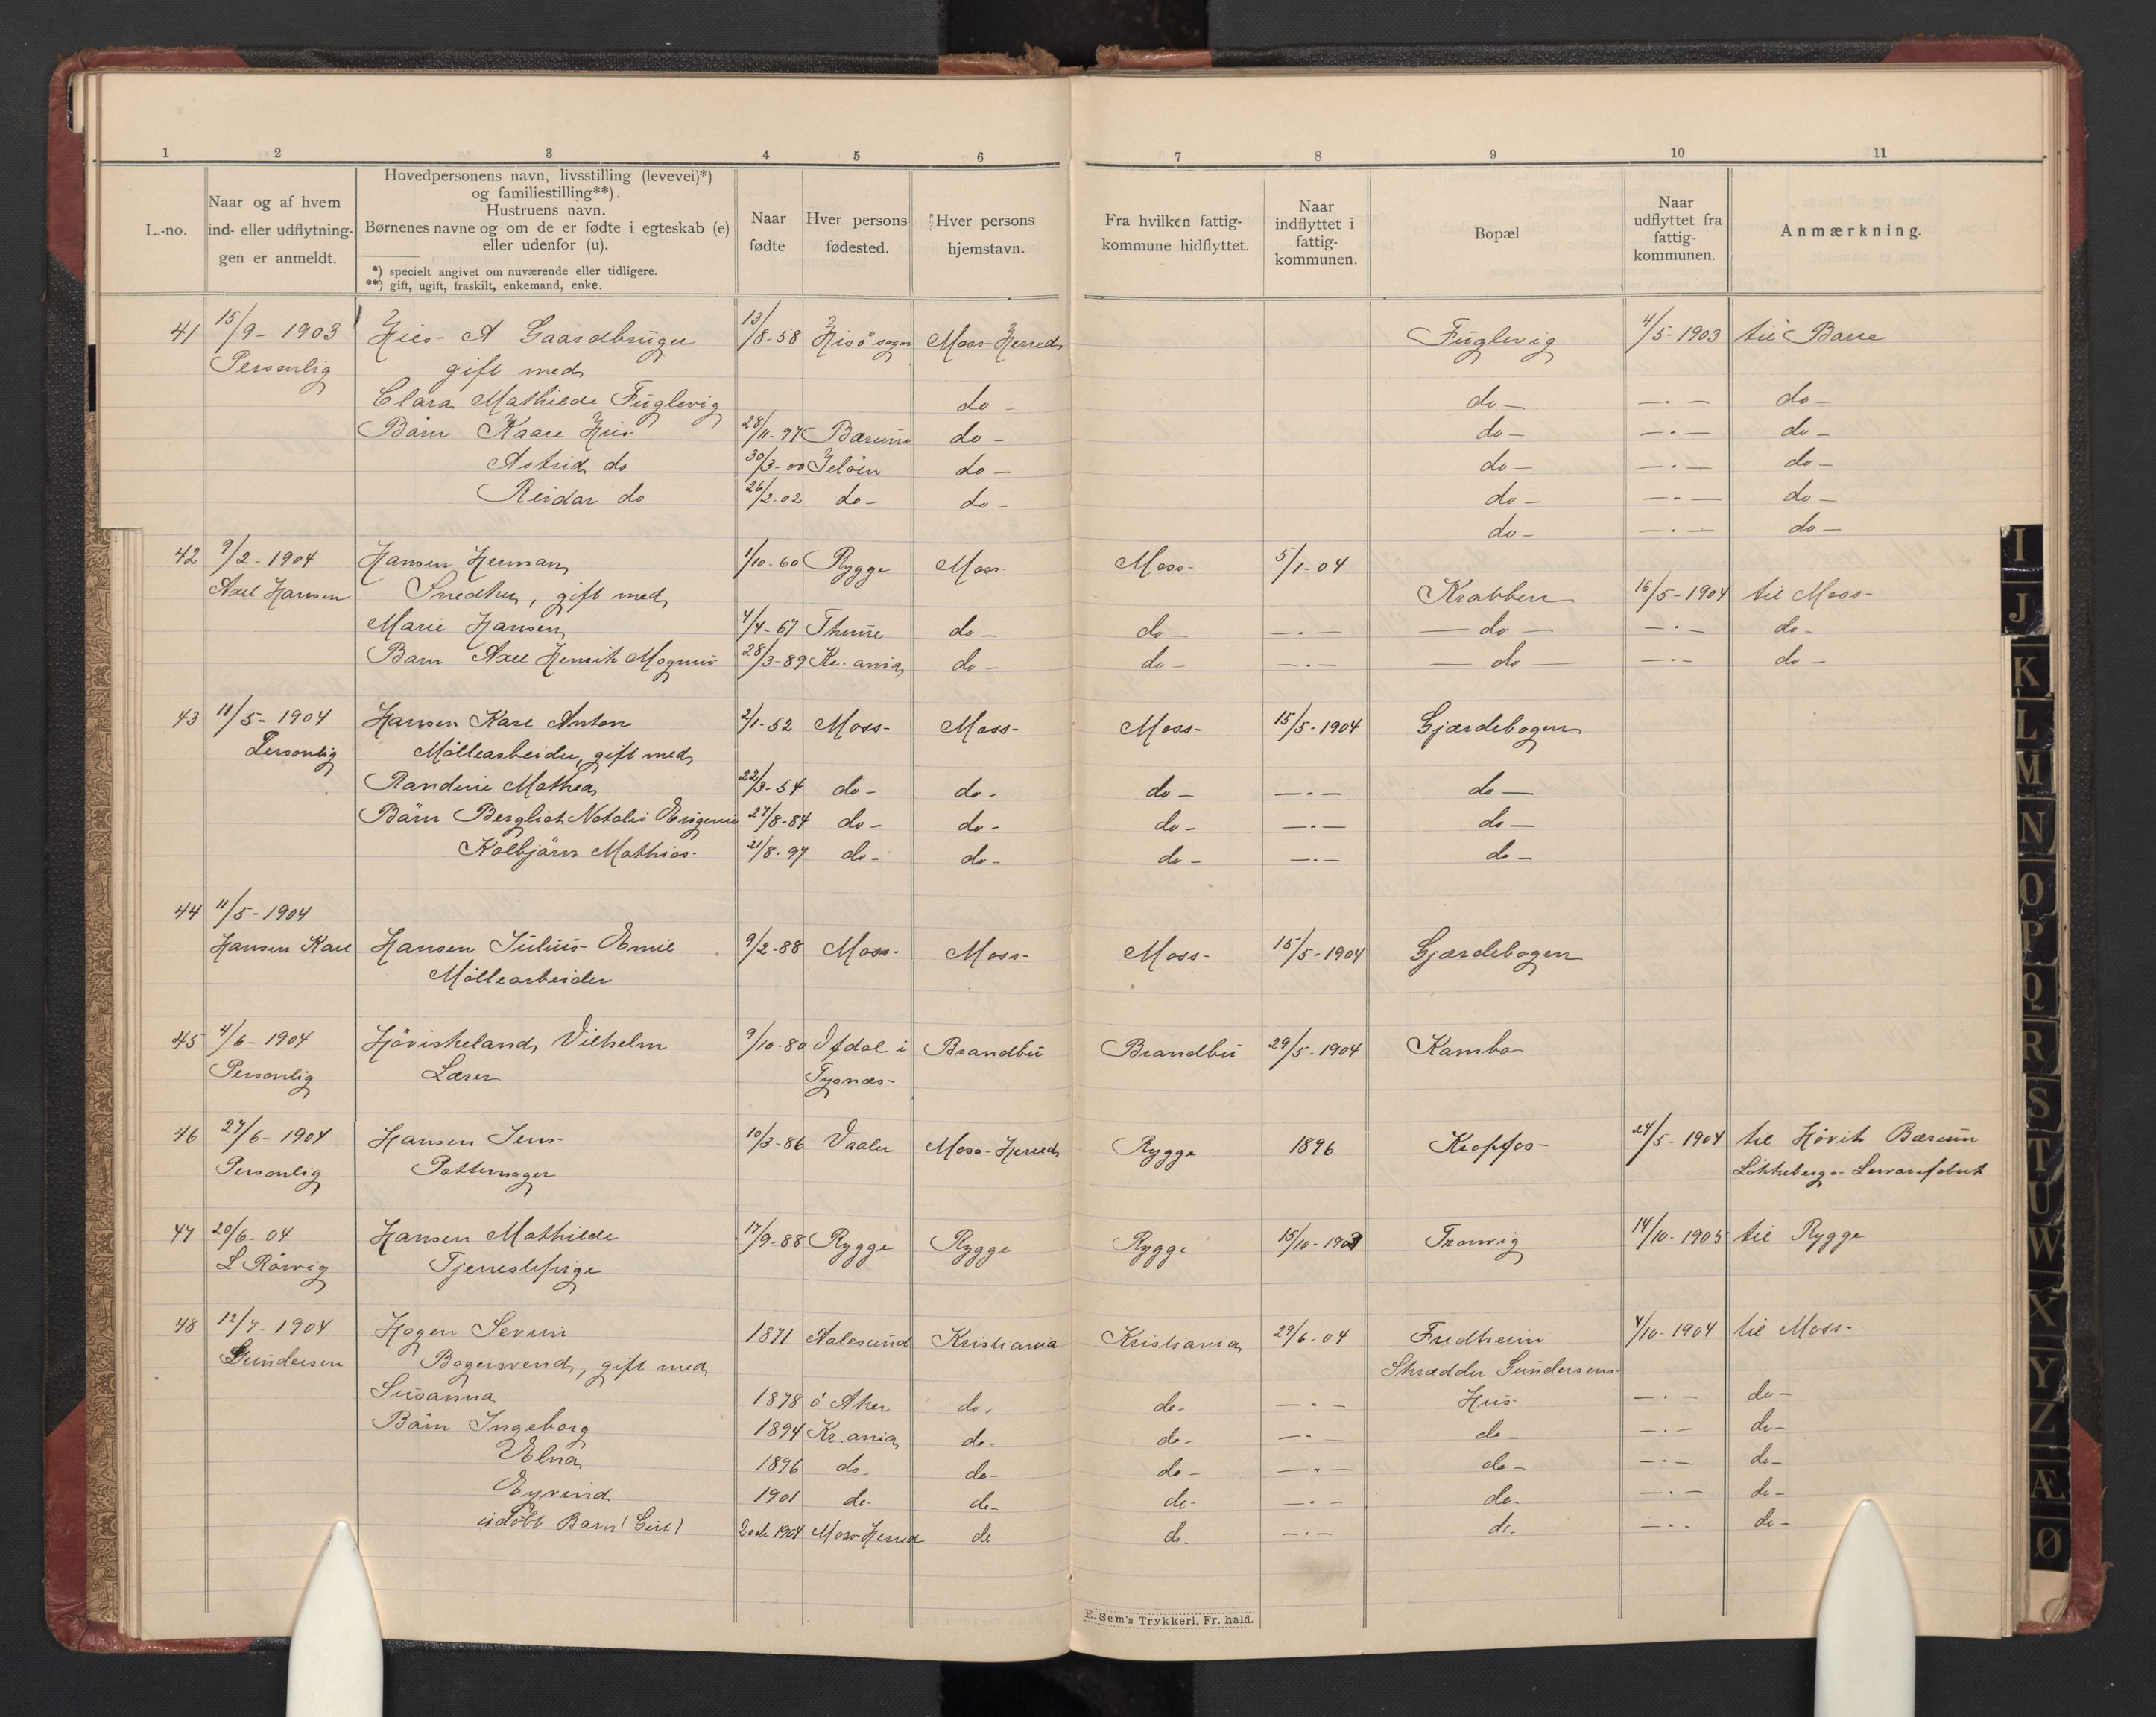 1 2 3 4 5 6 7 8 9 10 11
L.-no.
Naar og af hvem
ind- eller udflytnin-
gen er anmeldt.
Hovedpersonens navn, livsstilling (levevei)*)
og familiestilling**).
Hustruens navn.
Børnenes navne og om de er fødte i egteskab (e)
eller udenfor (u).
*) specielt angivet om nuværende eller tidligere.
**) gift, ugift, fraskilt, enkemand, enke.
Naar
fødte
Hver persons
fødested.
Hver persons
hjemstavn.
Fra hvilken fattig-
kommune hidflyttet.
Naar
indflyttet i
fattig-
kommunen.
Bopæl
Naar
udflyttet fra
fattig-
kommunen.
Anmærkning.
41 15/9-1903 A Gaardbruger 13/8-58 Hisö sogn Moss-Herred Fuglevig 4/5-1903 til
Personlig gift med
Clara Mathilde Fuglevig do - do - -.- do -
Børn Kaare 28/11-97 Bærum do - do - -.- do -
Astrid do 30/3-00 Jeløen do - do - -.- do -
Reidar do 26/2-02 do - do - do - -.- do -
do - -.- do -
42 9/2-1904 Hansen Herman 1/10-60 Rygge Moss- Moss- 5/1-04
Axel Hansen Snedker, gift med Krabben 16/5-1904 til Moss-
Marie Hansen 4/4-67 Thune do - do - -.- - do - -.- do -
Barn Axel Henrik Magnus 28/3-89 Kr.ania do - do - -.- - do - -.- do -
43 11/5-1904 Hansen Karl Anton 2/1-52 Moss- Moss- Moss- 15/5-1904 Gjærdebogen
Personlig Møllearbeider, gift med
Randine Mathea 22/3-54 do - do - do - -.- do -
Børn Bergliot Natalie Eugenie 27/8-84 do - do - do - -.- do -
Kolbjørn Mathias- 21/8-97 do - do - do - -.- do -
44 11/5-1904
Hansen Karl Hansen Julius Emil 9/2-88 Moss- Moss- Moss- 15/5-1904 Gjærdebogen
Møllearbeider
45 4/6-1904 Vilhelm 9/10-80 Brandbu Brandbu 29/5-1904 Kambo
Personlig Lærer Tysnæs-
46 27/6-1904 Hansen Jens- 10/3-86 Vaaler Moss-Herred Rygge 1896 Kropfos- 24/5-1904 til Høvik Bærum
Personlig Pottemager
47 20/6-04 Hansen Mathilde 17/9-88 Rygge Rygge Rygge 15/10-1903 Tronvig 14/10-1905 til Rygge
L Rörvig Tjenestepige
48 12/7-1904 Hagen Severin 1871 Aalesund Kristiania Kristiania 29/6-04 Fredheim 4/10-1904 til Moss-
Gundersen Bagersvend, gift med Skrædder Gundersens-
Susanna 1878 ö Aker do - do - -.- Hus -.- do -
Børn Ingeborg 1894 Kr.ania do - do - -.- do - -.- do -
Elna 1896 do - do - do - -.- do - -.- do -
Eyvind 1901 do - do - do - -.- do - -.- do -
udöbt Barn (Gut) 1904 Moss-Herred do do - -.- do - -.- do -
E. Sem's Trykkeri, Fr. hald.
I
J
K
L
M
N
O
P
Q
R
S
T
U
W
X
Y
Z
Æ
Ø